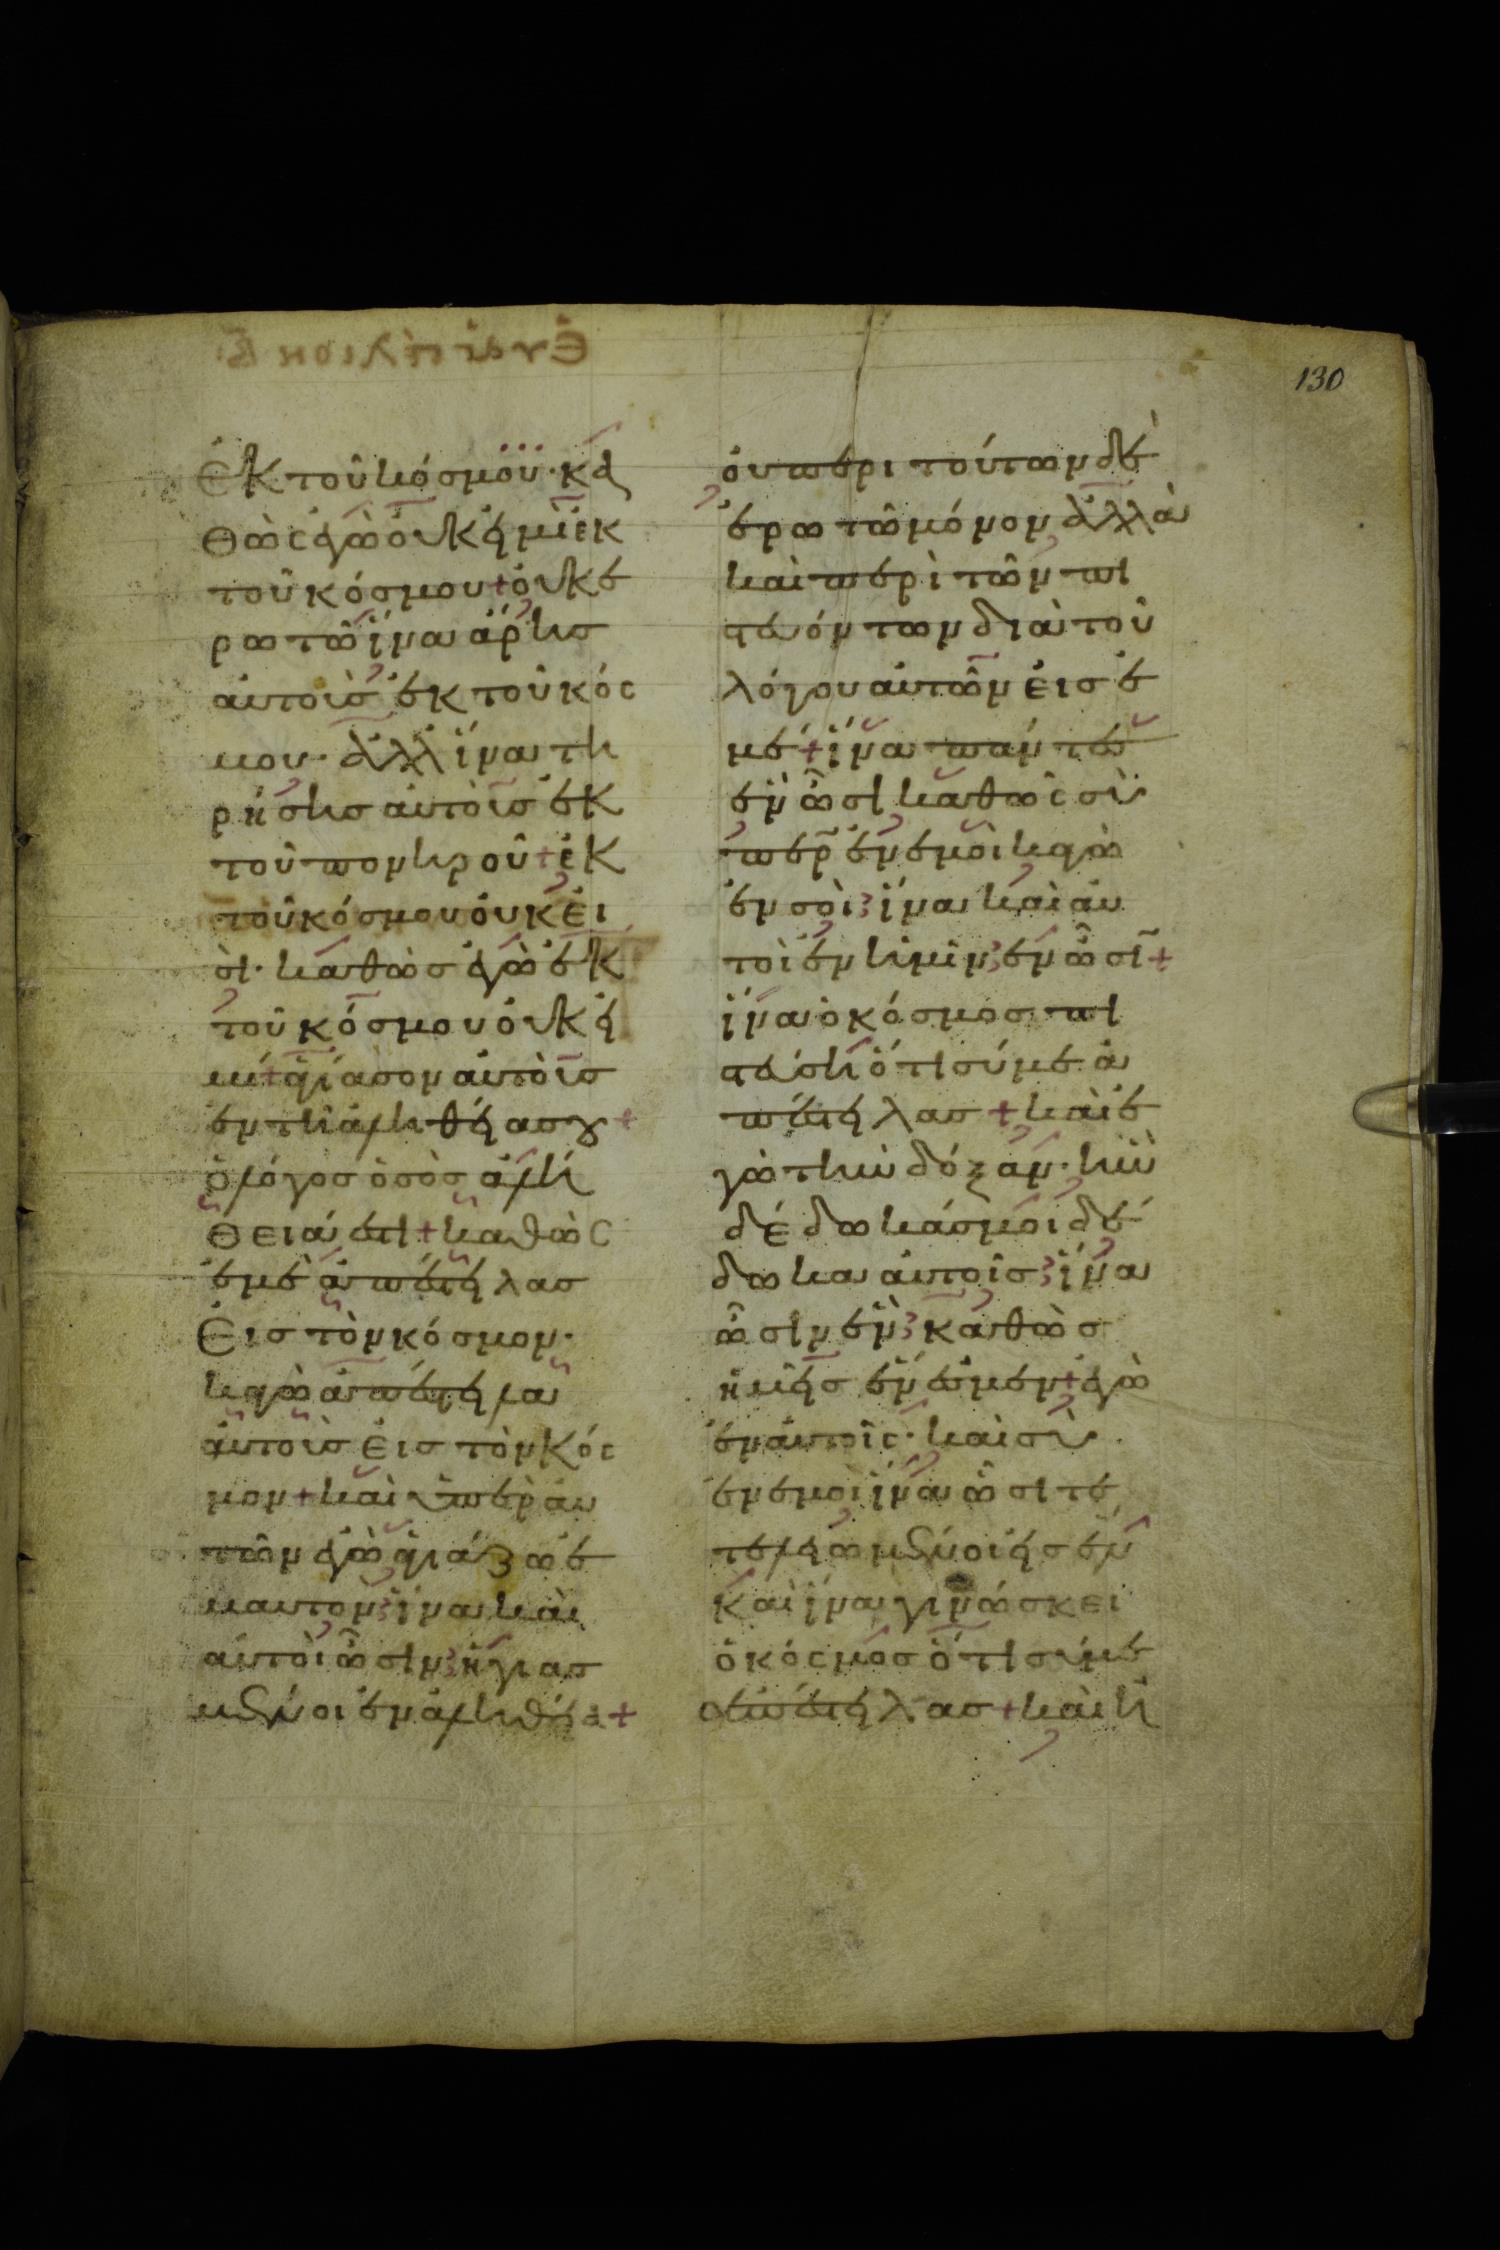 130
ἐκ τοῦ κόσμου· κα
θὼς ἐγὼ οὐκ εἰμὶ ἐκ
τοῦ κόσμου + οὐκ ἐ
ρωτῶ ἵνα ἄρης
αὐτοὺς ἐκ τοῦ κόσ
μου· ἀλλ ἵνα τη
ρήσης αὐτοὺς ἐκ
τοῦ πονηροῦ + ἐκ
τοῦ κόσμου οὐκ εἰ
σὶ· καθὼς ἐγὼ ἐκ
τοῦ κόσμου οὐκ εἰ
μί + ἁγίασον αὐτοὺς
ἐν τῆ ἀληθεία σου +
ὁ λόγος ὁ σὸς ἀλή
θειά ἐστι + καθὼς
ἐμὲ ἀπέστειλας
εἰς τὸν κόσμον·
κἀγὼ ἀπέστειλα
αὐτοὺς εἰς τὸν κόσ
μον + καὶ ὑπὲρ αὐ
τῶν ἐγὼ ἁγιάζω ἐ
μαυτὸν ἵνα καὶ
αὐτοὶ ὦσιν ἡγιασ
μένοι ἐν ἀληθεία +
οὐ περι τούτων δὲ
ἐρωτῶ μόνον ἀλλὰ
καὶ περὶ τῶν πι
στευόντων διὰ τοῦ
λόγου αὐτῶν εἰς ἐ
μέ + ἵνα πάντες
ἓν ὦσι καθὼς σὺ
περ ἐν ἐμοὶ κἀγὼ
ἐν σοὶ ἵνα καὶ αὐ
τοὶ ἐν ἡμῖν ἓν ὦσι +
ἵνα ὁ κόσμος πι
στεύση ὅτι σύ με ἀ
πέστειλας + καὶ ἐ
γὼ τὴν δόξαν· ἣν
δέδωκάς μοι δέ
δωκα αὐτοῖς ἵνα
ὦσιν ἓν καθὼς
ἡμεῖς ἕν ἐσμεν + ἐγὼ
ἐν αὐτοῖς· καὶ σὺ
ἐν ἐμοὶ ἵνα ὦσι τε
τελειωμένοι εἰς ἓν
καὶ ἵνα γινώσκει
ὁ κόσμος ὅτι σύ με
ἀπέστειλας + καὶ ἠ